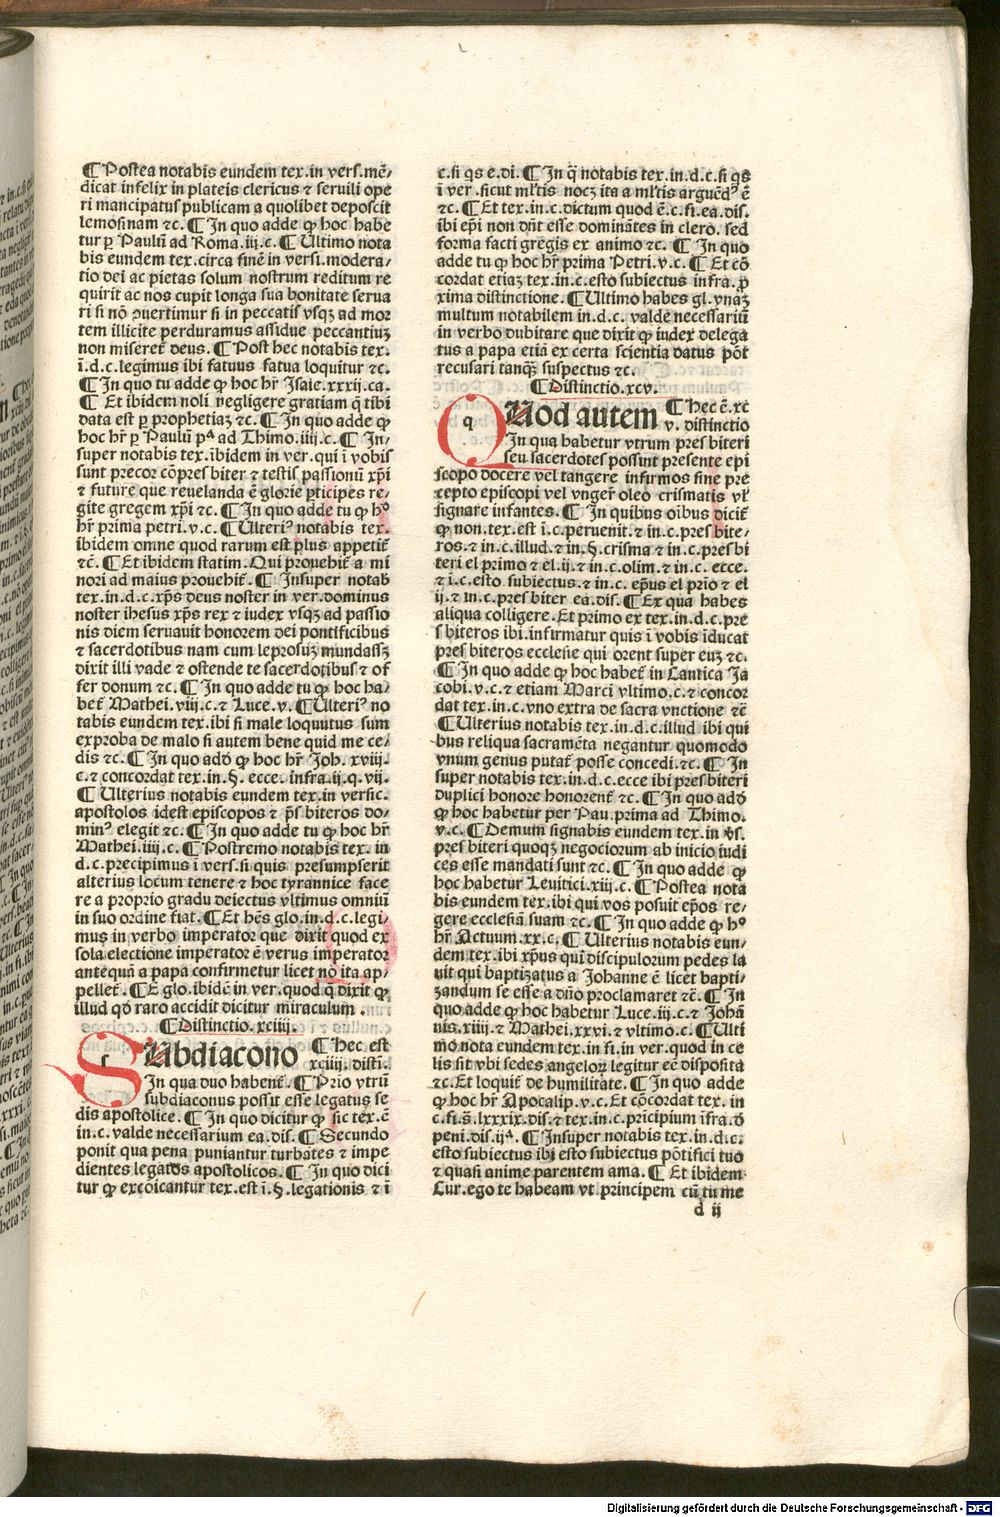 ¶ Postea notabis eundem tex. in vers. mē/
dicat infelix in plateis clericus ⁊ seruili ope
ri mancipatus publicam a quolibet deposcit
lemosinam ⁊c. ¶ In quo adde ꝙ hoc habe
tur ꝑ Paulū ad Roma. iij. c. ¶ Ultimo nota
bis eundem tex. circa finē in versi. modera/
tio dei ac pietas solum nostrum reditum re
quirit ac nos cupit longa sua bonitate serua
ri si nō ꝓuertimur si in peccatis vsqꝫ ad mor
tem illicite perduramus assidue peccantiuꝫ
non miseret̄ deus. ¶ Post hec notabis tex.
ī. d. c. legimus ibi fatuus fatua loquitur ⁊c.
¶ In quo tu adde ꝙ hoc hr̄ Isaie. xxxij. ca.
¶ Et ibidem noli negligere gratiam q̄ tibi
data est ꝑ prophetiaꝫ ⁊c. ¶ In quo adde ꝙ
hoc hr̄ ꝑ Paulū pᵃ ad Thimo. iiij. c. ¶ In/
super notabis tex. ibidem in ver. qui ī vobis
sunt precor cōpresbiter ⁊ testis passionū xp̄i
⁊ future que reuelanda ē glorie pticipes re/
gite gregem xp̄i ⁊c. ¶ In quo adde tu ꝙ hᵒ
hr̄ prima petri. v. c. ¶ Ulteriꝰ notabis tex.
ibidem omne quod rarum est plus appetit̄
⁊c̄. ¶ Et ibidem statim. Qui prouehit̄ a mi
nori ad maius prouehit̄. ¶ Insuper notab̄
tex. in. d. c. xp̄s deus noster in ver. dominus
noster ihesus xp̄s rex ⁊ iudex vsqꝫ ad passio
nis diem seruauit honorem dei pontificibus
⁊ sacerdotibus nam cum leprosuꝫ mundassꝫ
dixit illi vade ⁊ ostende te sacerdotibus ⁊ of
fer donum ⁊c. ¶ In quo adde tu ꝙ hoc ha/
bet̄ Mathei. viij. c. ⁊ Luce. v. ¶ Ulteriꝰ no
tabis eundem tex. ibi si male loquutus sum
exproba de malo si autem bene quid me ce/
dis ⁊c. ¶ In quo add̄ ꝙ hoc hr̄ Joh. xviij.
c. ⁊ concordat tex. in. §. ecce. infra. ij. q. vij.
¶ Ulterius notabis eundem tex. in versic.
apostolos idest episcopos ⁊ p̄sbiteros do/
minꝰ elegit ⁊c. ¶ In quo adde tu ꝙ hoc hr̄
Mathei. iiij. c. ¶ Postremo notabis tex. in
d. c. precipimus ī vers. si quis presumpserit
alterius locum tenere ⁊ hoc tyrannice face
re a proprio gradu deiectus vltimus omniū
in suo ordine fiat. ¶ Et hēs glo. in. d. c. legi/
mus in verbo imperator que dixit quod ex
sola electione imperator ē verus imperator
antequā a papa confirmetur licet nō ita ap/
pellet̄. ¶ E glo. ibidē in ver. quod q̄ dixit ꝙ
illud qd̄ raro accidit dicitur miraculum.
¶ Distinctio. xciiij.
SUbdiacono ¶ Hec est
xciiij. disti.
In qua duo habent̄. ¶ Prīo vtrū
subdiaconus possit esse legatus se
dis apostolice. ¶ In quo dicitur ꝙ sic tex. ē
in. c. valde necessarium ea. dis. ¶ Secundo
ponit qua pena puniantur turbātes ⁊ impe
dientes legatos apostolicos. ¶ In quo dici
tur ꝙ excōicantur tex. est ī. §. legationis ⁊ ī
c. si qs e. di. ¶ In q̄ notabis tex. in. d. c. si qs
ī ver. sicut ml̄tis nocꝫ ita a ml̄tis arguēdꝰ ē
⁊c. ¶ Et tex. in. c. dictum quod ē. c. fi. ea. dis.
ibi ep̄i non dn̄t esse dominātes in clero. sed
forma facti gregis ex animo ⁊c. ¶ In quo
adde tu ꝙ hoc hr̄ prima Petri. v. c. ¶ Et cō
cordat etiaꝫ tex. in. c. esto subiectus infra. ꝓ
xima distinctione. ¶ Ultimo habes gl. vnaꝫ
multum notabilem in. d. c. valde necessariū
in verbo dubitare que dixit ꝙ iudex delega
tus a papa etiā ex certa scientia datus pōt
recusari tanqꝫ suspectus ⁊c.
¶ Distinctio. xcv.
QUod autem ¶ Hec ē. xc
v. distinctio
In qua habetur vtrum presbiteri
seu sacerdotes possunt presente epi
scopo docere vel tangere infirmos sine pre
cepto episcopi vel vnger̄ oleo crismatis vl̄
signare infantes. ¶ In quibus oībus dicit̄
ꝙ non. tex. est ī. c. peruenit. ⁊ in. c. presbite/
ros. ⁊ in. c. illud. ⁊ in. §. crisma ⁊ in. c. presbi
teri el primo ⁊ el. ij. ⁊ in. c. olim. ⁊ in. c. ecce.
⁊ ī. c. esto subiectus. ⁊ in. c. ep̄us el prīo ⁊ el
ij. ⁊ in. c. presbiter ea. dis. ¶ Ex qua habes
aliqua colligere. Et primo ex tex. in. d. c. pre
sbiteros ibi. infirmatur quis ī vobis īducat
presbiteros ecclesie qui orent super euꝫ ⁊c.
¶ In quo adde ꝙ hoc habet̄ in Cantica Ja
cobi. v. c. ⁊ etiam Marci vltimo. c. ⁊ concor
dat tex. in. c. vno extra de sacra vnctione ⁊c̄
¶ Ulterius notabis tex. in. d. c. illud ibi qui
bus reliqua sacramēta negantur quomodo
vnum genus putat̄ posse concedi. ⁊c. ¶ In
super notabis tex. in. d. c. ecce ibi presbiteri
duplici honore honorent̄ ⁊c. ¶ In quo add̄
ꝙ hoc habetur per Pau. prima ad Thimo.
v. c. ¶ Demum signabis eundem tex. in v̄s.
presbiteri quoqꝫ negociorum ab inicio iudi
ces esse mandati sunt ⁊c. ¶ In quo adde ꝙ
hoc habetur Leuitici. xiij. c. ¶ Postea nota
bis eundem tex. ibi qui vos posuit ep̄os re/
gere ecclesiā suam ⁊c. ¶ In quo adde ꝙ hᵒ
hr̄ Actuum. xx. c. ¶ Ulterius notabis eun/
dem tex. ibi xp̄us qui discipulorum pedes la
uit qui baptizatus a Johanne ē licet bapti/
zandum se esse a dn̄o proclamaret ⁊c̄. ¶ In
quo adde ꝙ hoc habetur Luce. iij. c. ⁊ Johā
nis. xiiij. ⁊ Mathei. xxvi. ⁊ vltimo. c. ¶ Ulti
mo nota eundem tex. in fi. in ver. quod in ce
lis sit vbi sedes angeloꝝ legitur eē disposita
⁊c. Et loquit̄ de humilitate. ¶ In quo adde
ꝙ hoc hr̄ Apocalip. v. c. Et cōcordat tex. in
c. fi. s̄. lxxxix. dis. ⁊ tex. in. c. pricipium īfra. d̄
peni. dis. ijᵃ. ¶ Insuper notabis tex. in. d. c.
esto subiectus ibi esto subiectus pōtifici tuo
⁊ quasi anime parentem ama. ¶ Et ibidem
Cur. ego te habeam vt principem cū tu me
d ij
Digitalisierung gefördert durch die Deutsche Forschungsgemeinschaft - DFG